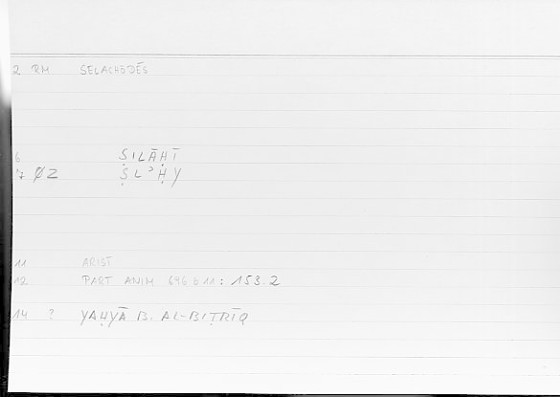 2 RM SELACHŌDĒS
6 ṢILĀḤĪ
7 ØZ ṢLʾḤY
11 ARIST
12 PART ANIM 696 b 11 : 153.2
14 ? YAḤYĀ B. AL-BIṬRĪQ